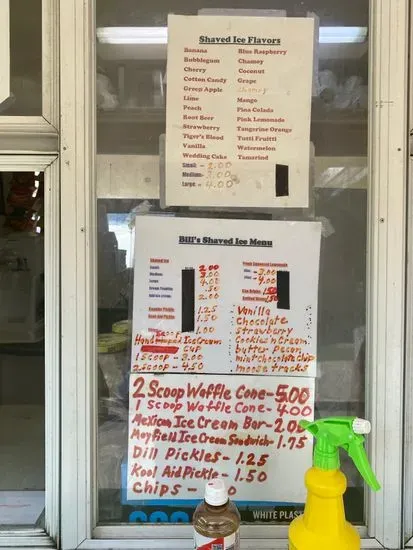 Shaved Ice Flavors
Banana Blue Raspberry
Bubblegum Chamoy
Cherry Coconut
Cotton Candy Grape
Green Apple
Lime Mango
Peach Pina Colada
Root Beer Pink Lemonade
Strawberry Tangerine Orange
Tiger's Blood Tutti Fruitti
Vanilla Watermelon
Wedding Cake Tamarind
Small- 2.00
Medium- 3.00
Large- 4.00
Bill's Shaved Ice Menu
Shaved Ice
Small 2.00
Medium 3.00
Large 4.00
.50
2.00
1.25
1.50
1.00
Ice Cream
Cup
1 Scoop - 3.00
2 Scoop - 4.50
Fresh Squeezed Lemonade
3.00
4.00
1.50
1.50
- Vanilla
Chocolate
Strawberry
Cookies n Cream
butter Pecan
mint chocolate chip
moose tracks
2 Scoop Waffle Cone - 5.00
1 Scoop Waffle Cone - 4.00
Mexican Ice Cream Bar - 2.00
Mayfield Ice Cream Sandwich - 1.75
Dill Pickles - 1.25
Kool Aid Pickle - 1.50
Chips -
WHITE PLAST